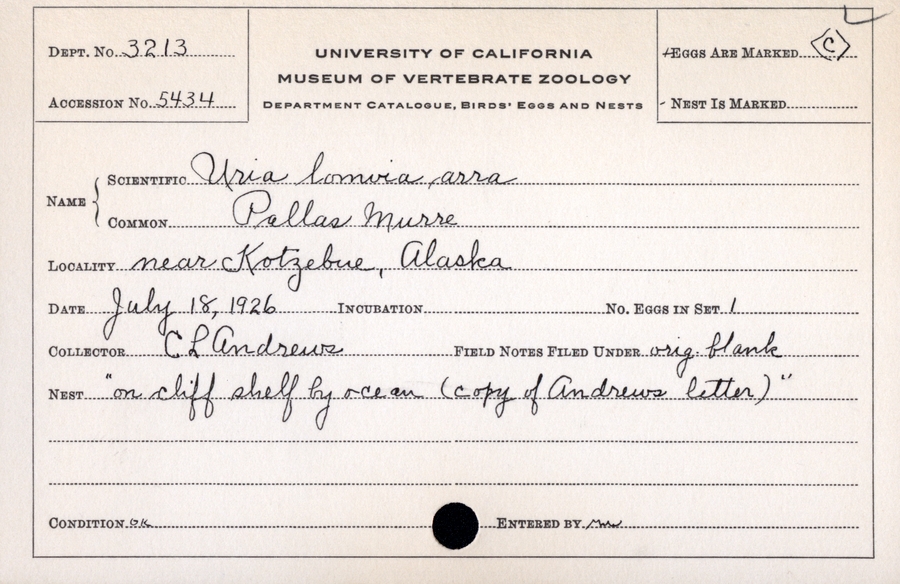 DEPT. No. 3213
ACCESSION No. 5434
UNIVERSITY OF CALIFORNIA
MUSEUM OF VERTEBRATE ZOOLOGY
DEPARTMENT CATALOGUE, BIRDS' EGGS AND NESTS
EGGS ARE MARKED C
NEST IS MARKED
NAME
SCIENTIFIC Uria lomvia arra
COMMON Pallas Murre
LOCALITY near Kotzebue, Alaska
DATE July 18, 1926 INCUBATION NO. EGGS IN SET 1
COLLECTOR C L Andrews FIELD NOTES FILED UNDER orig. blank
NEST "on cliff shelf by ocean (copy of Andrews letter)"
CONDITION OK ENTERED BY